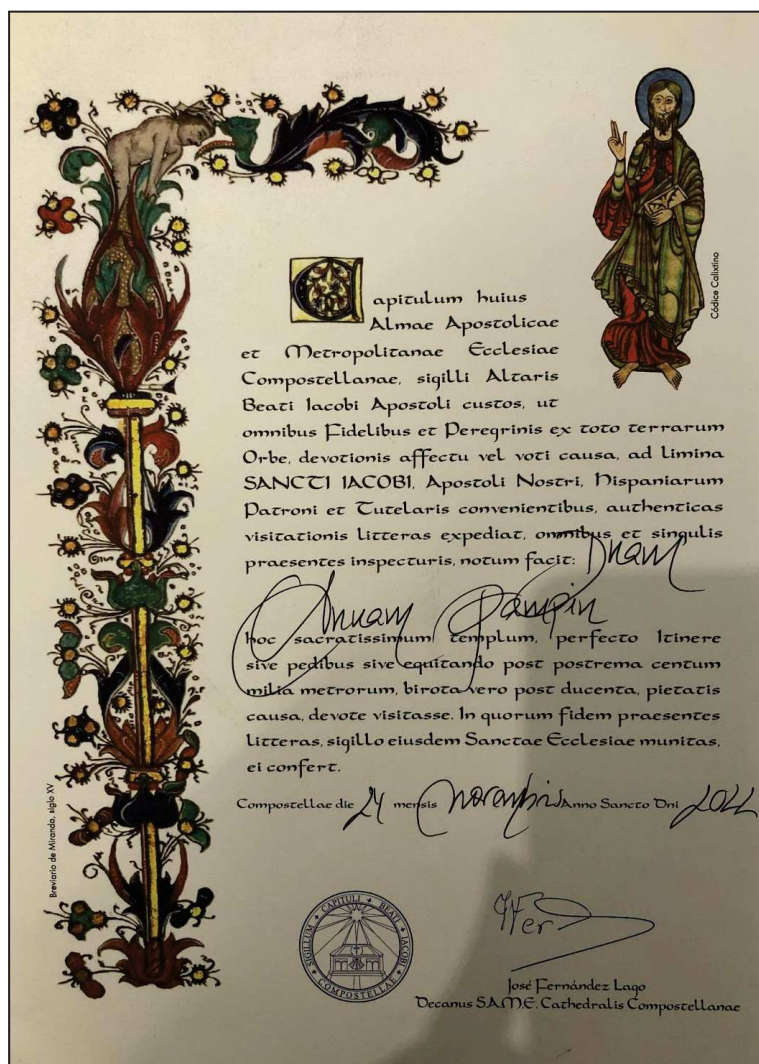 Códice Calixtino
Capitulum huius
Almae Apostolicae
et Metropolitanae Ecclesiae
Compostellanae, sigilli Altaris
Beati Iacobi Apostoli custos, ut
omnibus Fidelibus et Peregrinis ex toto terrarum
Orbe, devotionis affectu vel voti causa, ad limina
SANCTI IACOBI, Apostoli Nostri, Hispaniarum
Patroni et Tutelaris convenientibus, authenticas
visitationis litteras expediat, omnibus et singulis
praesentes inspecturis, notum facit: Dnam
Annam Pampin
hoc sacratissimum templum, perfecto Itinere
sive pedibus sive equitando post postrema centum
milia metrorum, birota vero post ducenta, pietatis
causa, devote visitasse. In quorum fidem praesentes
litteras, sigillo eiusdem Sanctae Ecclesiae munitas,
ei confert.
Compostellae die 24 mensis Novembris Anno Sancto Dni 2022
Breviario de Miranda, siglo XV
SIGILLUM CAPITULI BEATI IACOBI COMPOSTELLAE
José Fernández Lago
Decanus S.A.M.E. Cathedralis Compostellanae